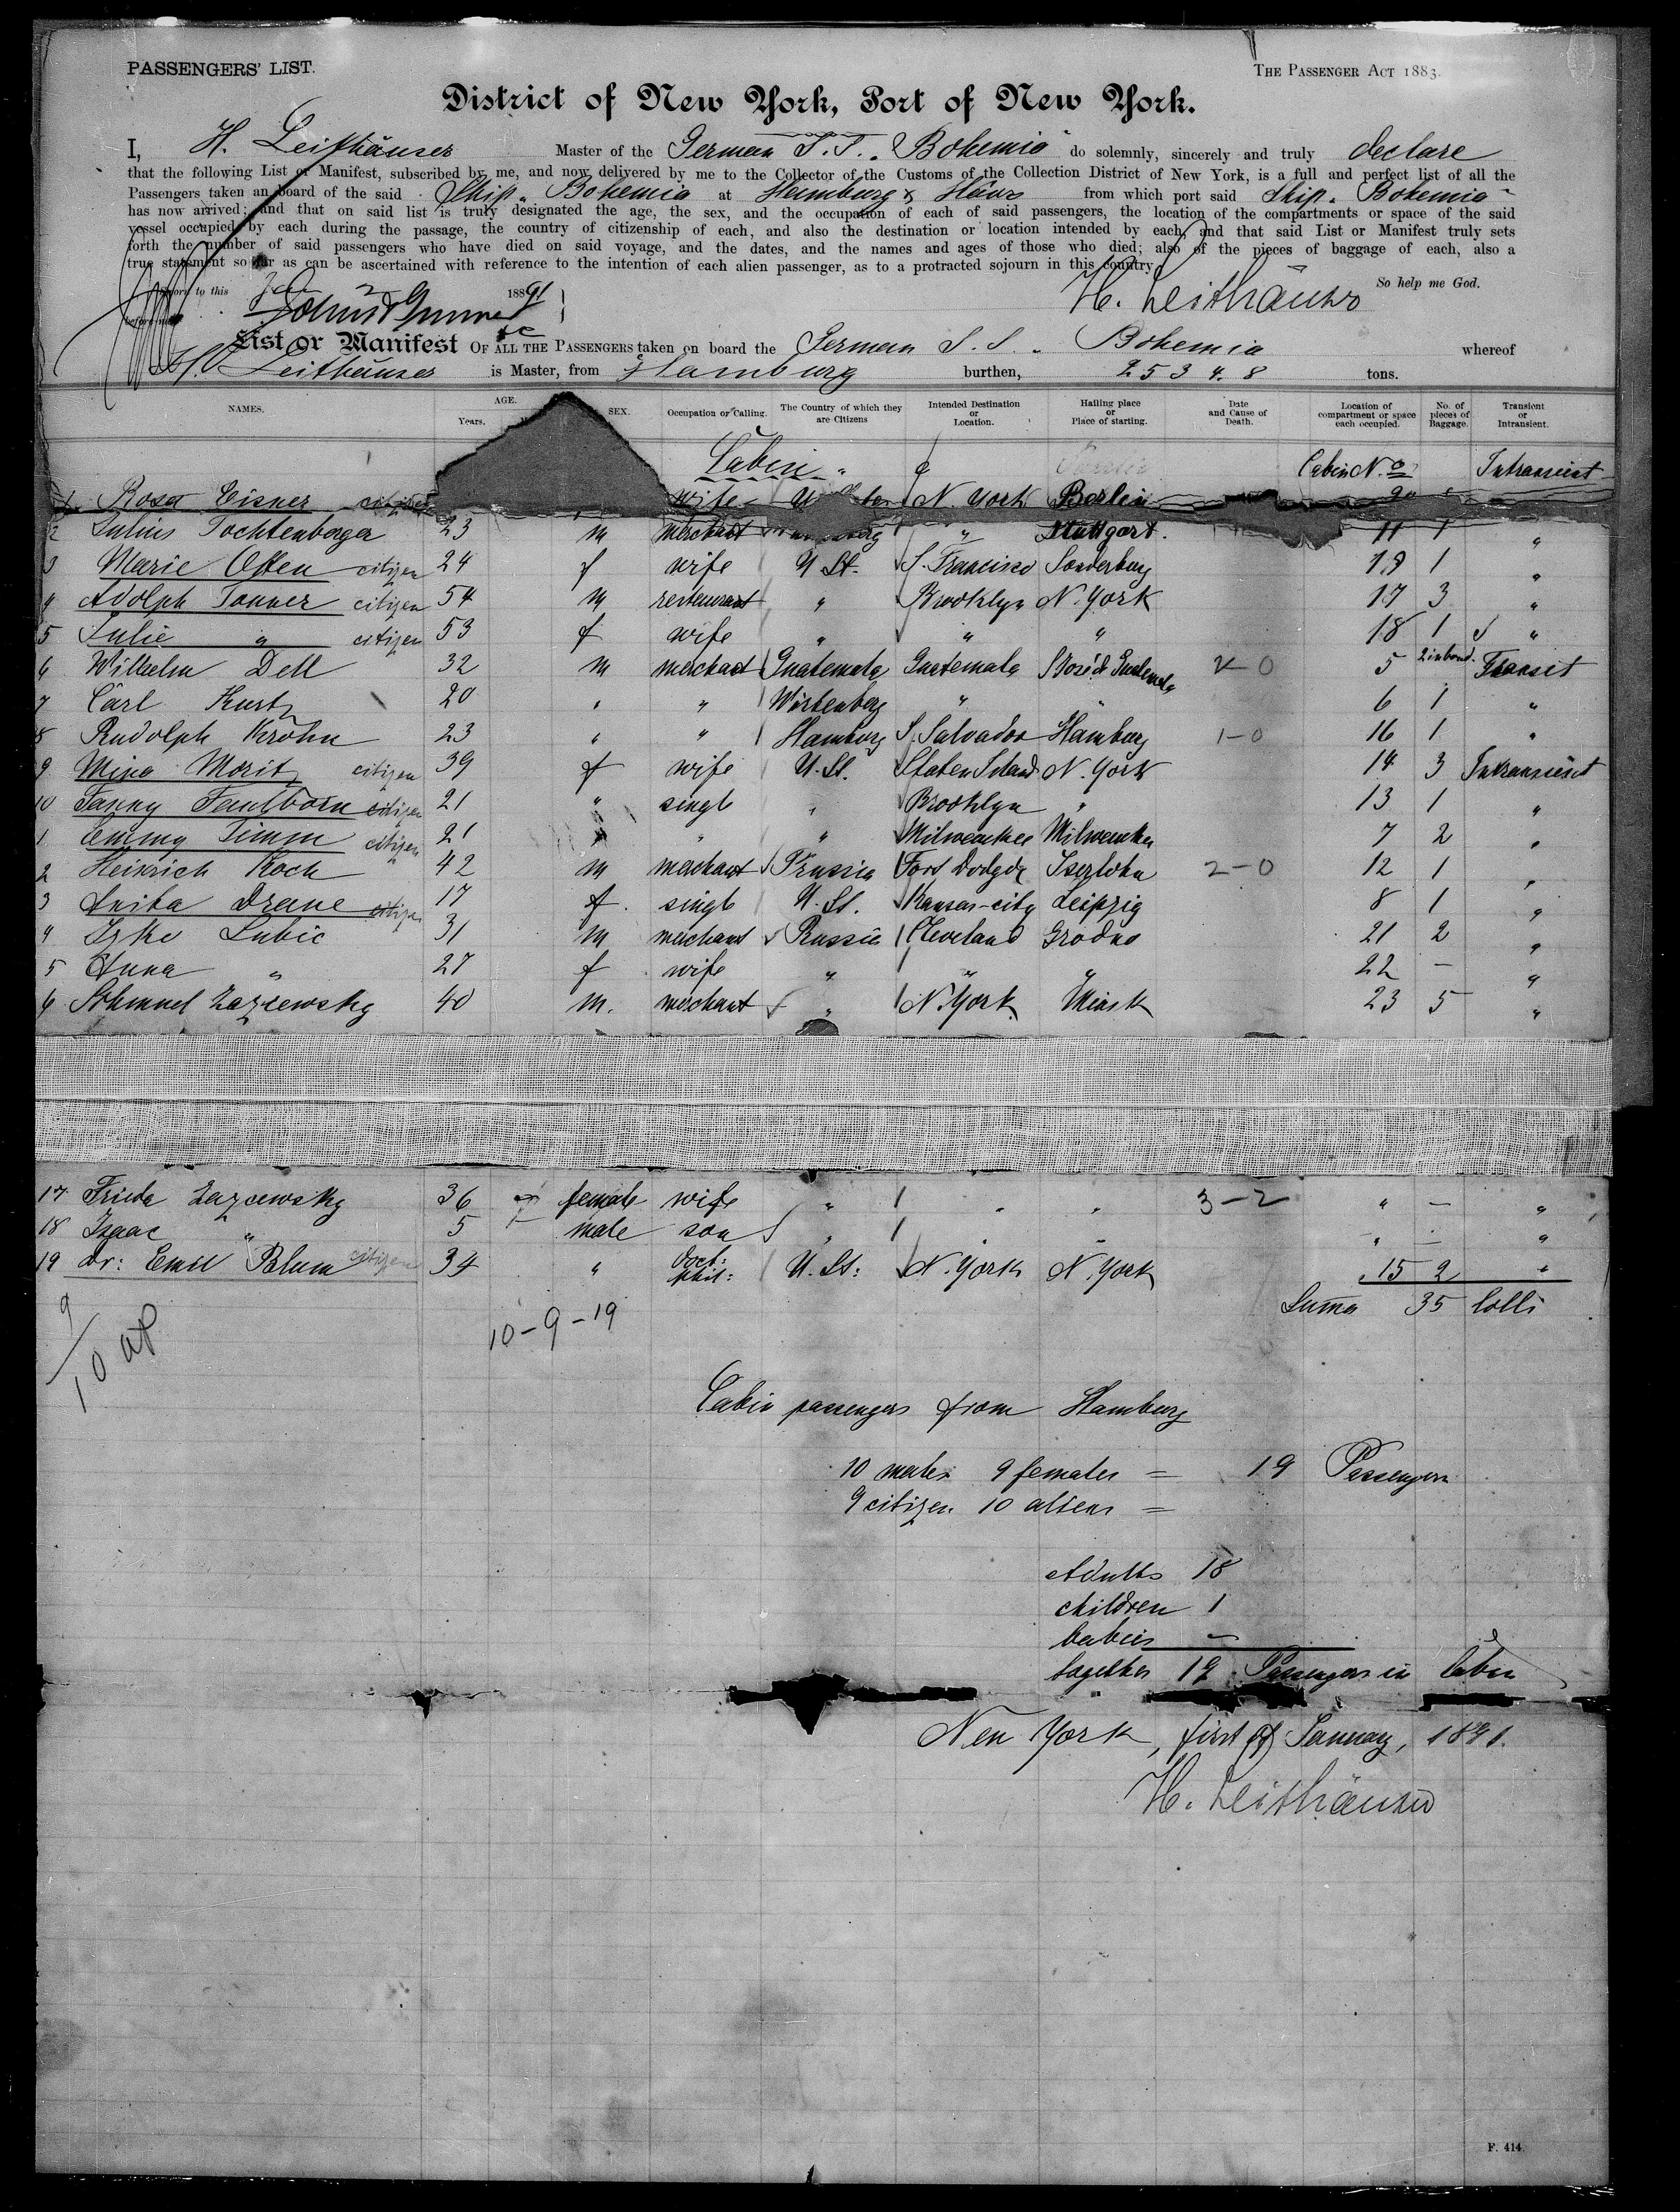 PASSENGERS' LIST.
THE PASSENGER ACT 1883.
District of New York, Port of New York.
I, H. Leithäuser Master of the German S.S. „Bohemia" do solemnly, sincerely and truly declare
that the following List or Manifest, subscribed by me, and now delivered by me to the Collector of the Customs of the Collection District of New York, is a full and perfect list of all the
Passengers taken an board of the said Ship „Bohemia at Hamburg & from which port said Ship „Bohemia"
has now arrived; and that on said list is truly designated the age, the sex, and the occupation of each of said passengers, the location of the compartments or space of the said
vessel occupied by each during the passage, the country of citizenship of each, and also the destination or location intended by each, and that said List or Manifest truly sets
forth the number of said passengers who have died on said voyage, and the dates, and the names and ages of those who died; also of the pieces of baggage of each, also a
true statement so far as can be ascertained with reference to the intention of each alien passenger, as to a protracted sojourn in this country.
So help me God.
to this 2 1891
H. Leithäuser
before me
List or Manifest OF ALL THE PASSENGERS taken on board the German S.S. „Bohemia whereof
H. Leithäuser is Master, from Hamburg burthen, 2534.8 tons.
NAMES. AGE. Years. SEX. Occupation or Calling. The Country of which they are Citizens Intended Destination or Location. Hailing place or Place of starting. Date and Cause of Death. Location of compartment or space each occupied. No. of pieces of Baggage. Transient or Intransient.
Cabin Cabin No Intransient
1 Rosa Eisner citizen wife N. York Berlin 20
2 Julius Tochtenberger 23 m merchant " Stuttgart. 11 1 "
3 Marie Offen citizen 24 f wife U St. S. Francisco Sonderburg 19 1 "
4 Adolph Tanner citizen 54 m restaurant " Brooklyn N. York 17 3 "
5 Julie " citizen 53 f wife " " " 18 1 "
6 Wilhelm Dell 32 m merchant Guatemala Guatemala S José d Guatemala 2-0 5 2 inbond. Transit
7 Carl Kurtz 20 " " Würtenberg " 6 1 "
8 Rudolph Kröhn 23 " " Hamburg S. Salvador Hamburg 1-0 16 1 "
9 Mina Moritz citizen 39 f wife U. St. Staten Island N. York 14 3 Intransient
10 Fanny citizen 21 " single " Brooklyn " 13 1 "
1 Emmy Timm citizen 21 " " " Milwaukee Milwaukee 7 2 "
2 Heinrich Koch 42 m merchant Prussia Fort Dodge Iserlohn 2-0 12 1 "
3 Anita Drene citizen 17 f. single U. St. Kansas-city Leipzig 8 1 "
4 Izko Lubic 31 m merchant Russia Cleveland Grodno 21 2 "
5 Anna " 27 f wife " " " 22 - "
6 Schmuel Zazcewsky 40 m. merchant " N. York Minsk 23 5 "
17 Frieda Zazcewsky 36 female wife " " " 3-2 " - "
18 Isaac " 5 male son " " - "
19 Dr: Emil Blum citizen 34 " Doct: phil: U. St: N. York N. York 15 2 "
Suma 35 Colli
9/10 ap
10-9-19
Cabin passengers from Hamburg
10 males 9 females = 19 Passengers
9 citizen 10 aliens =
Adults 18
children 1
babies -
together 19 Passengers in Cabin
New York, first of January, 1891.
H. Leithäuser
F. 414.